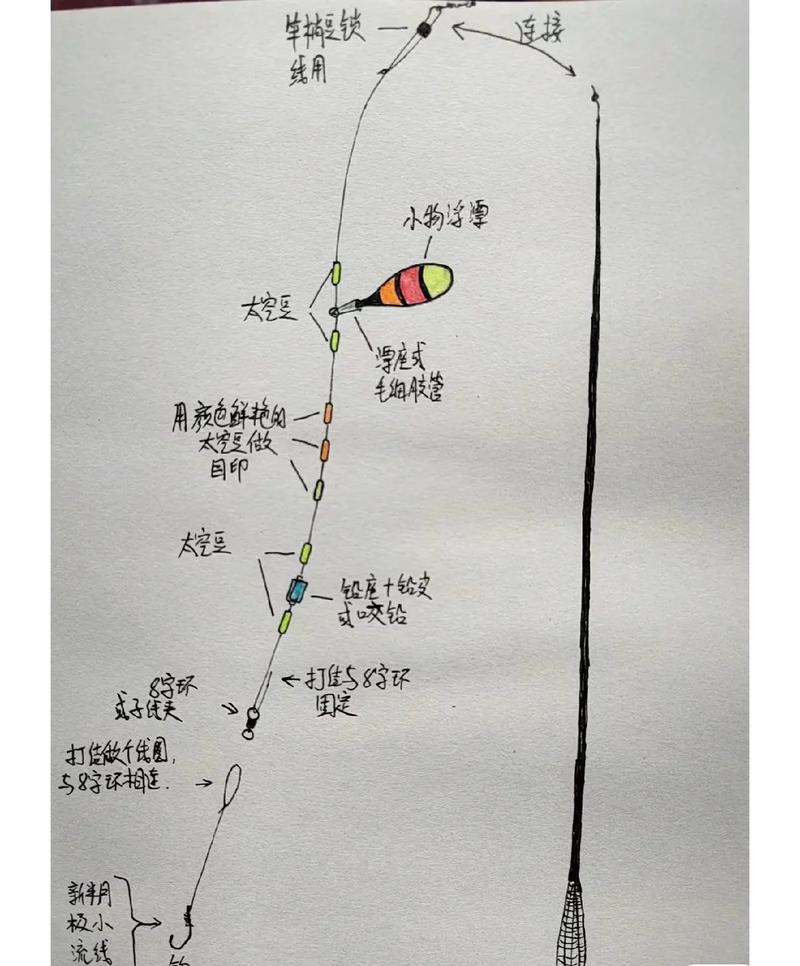 竿梢豆锁
线用
连接
小物浮漂
太空豆
漂座或
毛细胶管
用颜色鲜艳的
太空豆做
目印
太空豆
铅座+铅皮
或咬铅
8字环
或子线夹
打结与8字环
固定
打结做个线圈,
与8字环相连.
新半月
极小
流线
钩